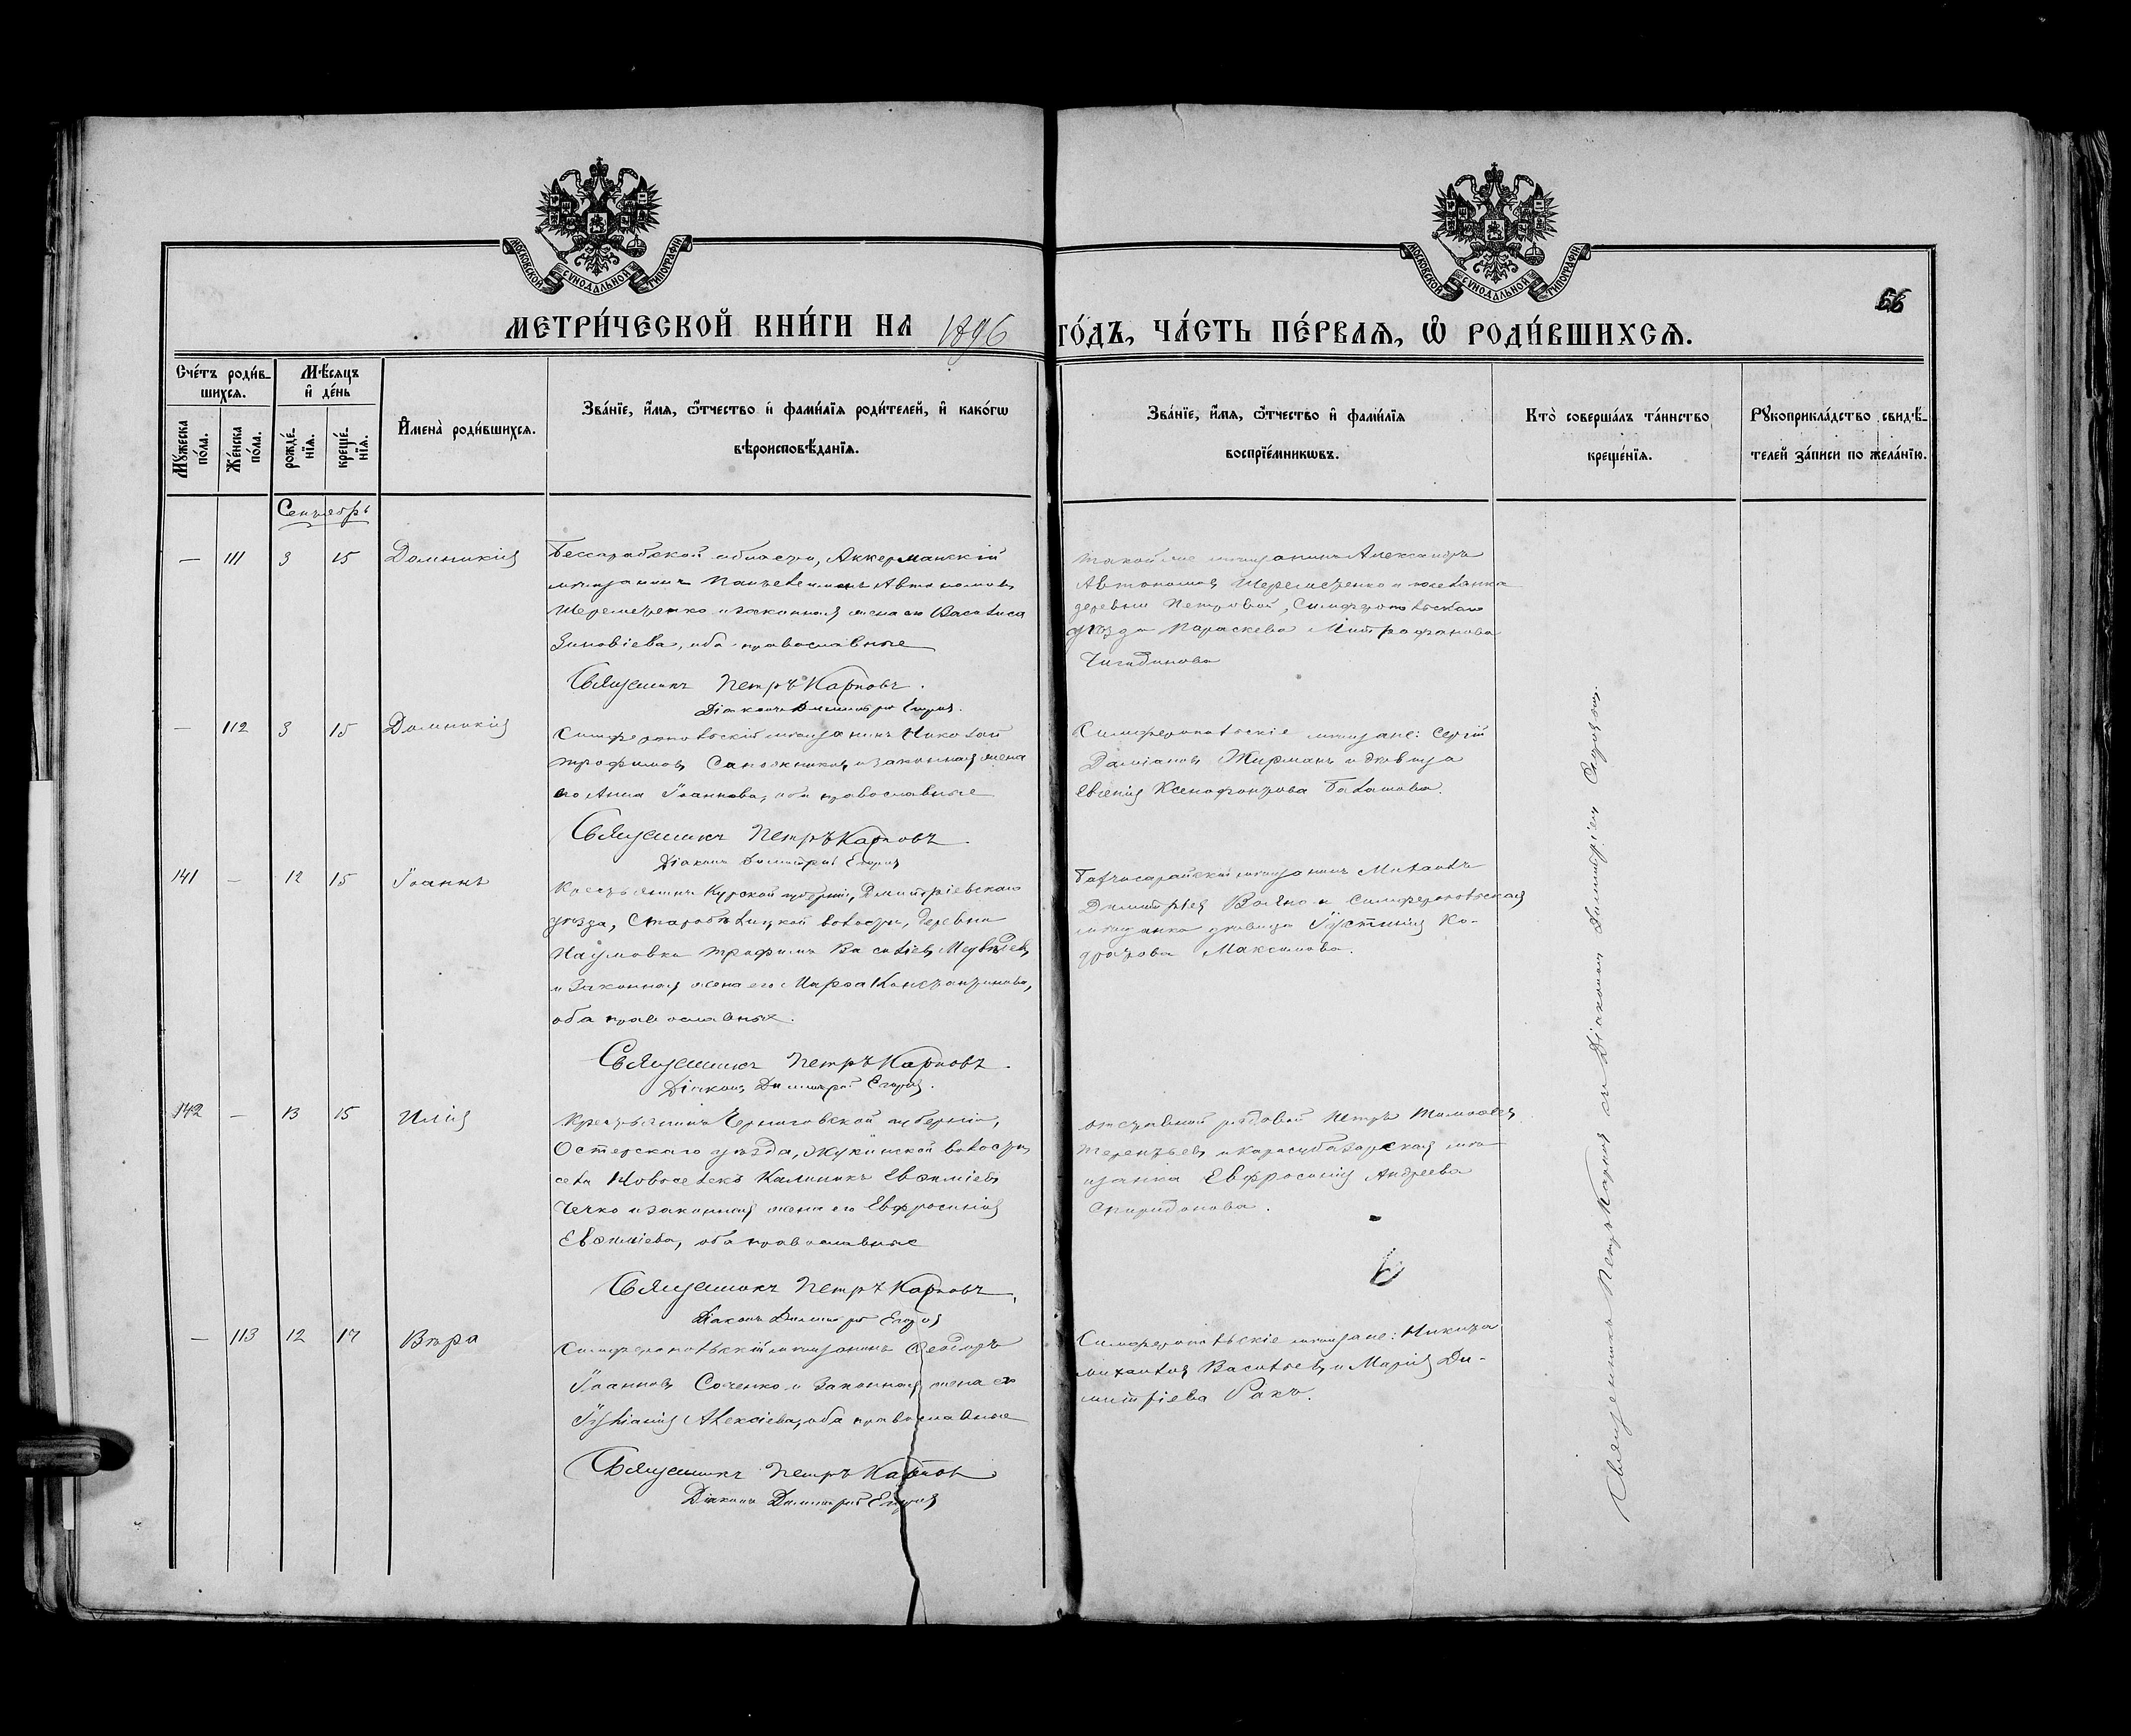 МОСКОВСКОЙ СѴНОДАЛЬНОЙ ТИПОГРАФІИ
МОСКОВСКОЙ СѴНОДАЛЬНОЙ ТИПОГРАФІИ
66
МЕТРИ́ЧЕСКОЙ КНИ́ГИ НА 1896 ГО́ДЪ, ЧА́СТЬ ПЕ́РВАѦ, Ѡ҆ РОДИ́ВШИХСѦ.
Сче́тъ роди́в-
шихсѧ.
Мꙋжеска по́ла.
Же́нска по́ла.
Мѣ́сяцъ
и҆ де́нь
рожде́-
нїѧ.
креще́-
нїѧ.
И҆мена̀ роди́вшихсѧ.
Зва́нїе, и҆́мѧ, ѻ҆́тчество и҆ фами́лїѧ роди́телей, и҆ како́гѡ
вѣроисповѣ́данїѧ.
Зва́нїе, и҆́мѧ, ѻ҆́тчество и҆ фами́лїѧ
воспрїе́мникѡвъ.
Кто̀ соверша́лъ та́инство
креще́нїѧ.
Рꙋкоприкла́дство свидѣ́-
телей за́писи по жела́нїю.
Сентябрь
— 111 3 15 Домникія
Бессарабской области, Аккерманскій
мѣщанинъ Пантелеимонъ Автономовъ
Шереметенко и законная жена его Василиса
Зиновіева, оба православные
Священникъ Петръ Карповъ.
Діаконъ Димитрій
такой же мѣщанинъ Александръ
Автономовъ Шереметенко и поселянка
деревни Петровой, Симферопольскаго
уѣзда Параскева Митрофанова
— 112 3 15 Домникія
Симферопольскій мѣщанинъ Николай
Трофимовъ Сапожниковъ и законная жена
его Анна Іоаннова, оба православные
Священникъ Петръ Карповъ.
Діаконъ Димитрій
Симферопольскіе мѣщане: Сергій
Даміановъ Жирманъ и дѣвица
Евгенія Ксенофонтова Балашова.
141 — 12 15 Іоаннъ
Крестьянинъ Курской губерніи, Дмитріевскаго
уѣзда, Старобѣлицкой волости, деревни
Наумовки Трофимъ Василіевъ Медвѣдевъ
и законная жена его Марѳа Константинова,
оба православные.
Священникъ Петръ Карповъ.
Діаконъ Димитрій
Бахчисарайскій мѣщанинъ Михаилъ
Димитріевъ и Симферопольская
мѣщанка дѣвица Іустинія Ко-
дратова Максимова.
142 — 13 15 Илія
Крестьянинъ Черниговской губерніи,
Остерскаго уѣзда, Жукинской волости,
села Новоселокъ Калиникъ Евѳиміевъ
Чечко и законная жена его Евфросинія
Евѳиміева, оба православные
Священникъ Петръ Карповъ.
Діаконъ Димитрій
отставной рядовой Петръ Тимоѳеевъ
Терентьевъ и Карасубазарская мѣ-
щанка Евфросинія Андреева
Спиридонова.
— 113 12 17 Вѣра
Симферопольскій мѣщанинъ Ѳеодоръ
Іоанновъ Соченко и законная жена его
Іуліанія Алексіева, оба православные
Священникъ Петръ Карповъ
Діаконъ Димитрій
Симферопольскіе мѣщане: Никита
Михаиловъ Васильевъ и Марія Ди-
митріева Ракъ.
Священникъ Петръ Карповъ съ Діакономъ Димитріемъ